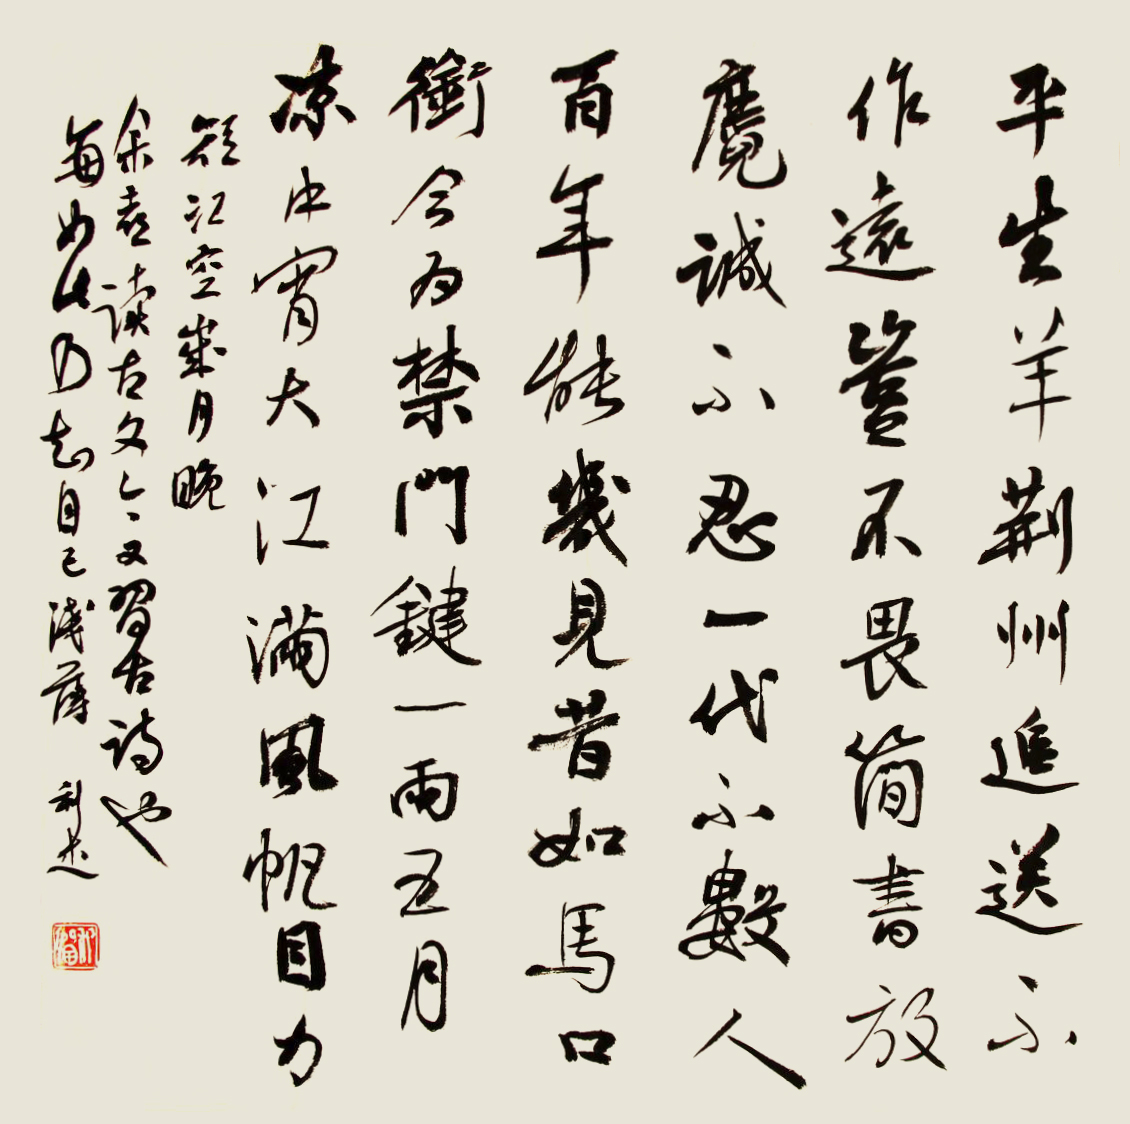 平生羊荆州追送不
作遠豈不畏簡書放
麑誠不忍一代不數人
百年能幾見昔如馬口
銜今為禁門鍵一雨五月
凉中宵大江滿風帆目力
短江空歲月晚
余喜讀古文又習古詩也
每如此乃知自己淺薄 利